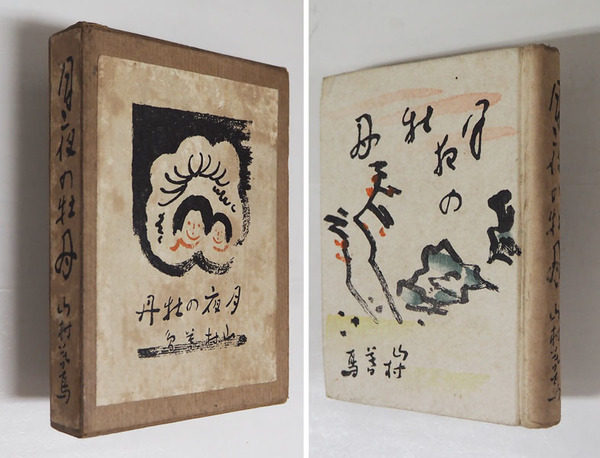 月夜の牡丹 山村暮鳥
月夜の牡丹
山村暮鳥
月夜の牡丹
山村暮鳥
月夜の牡丹 山村暮鳥